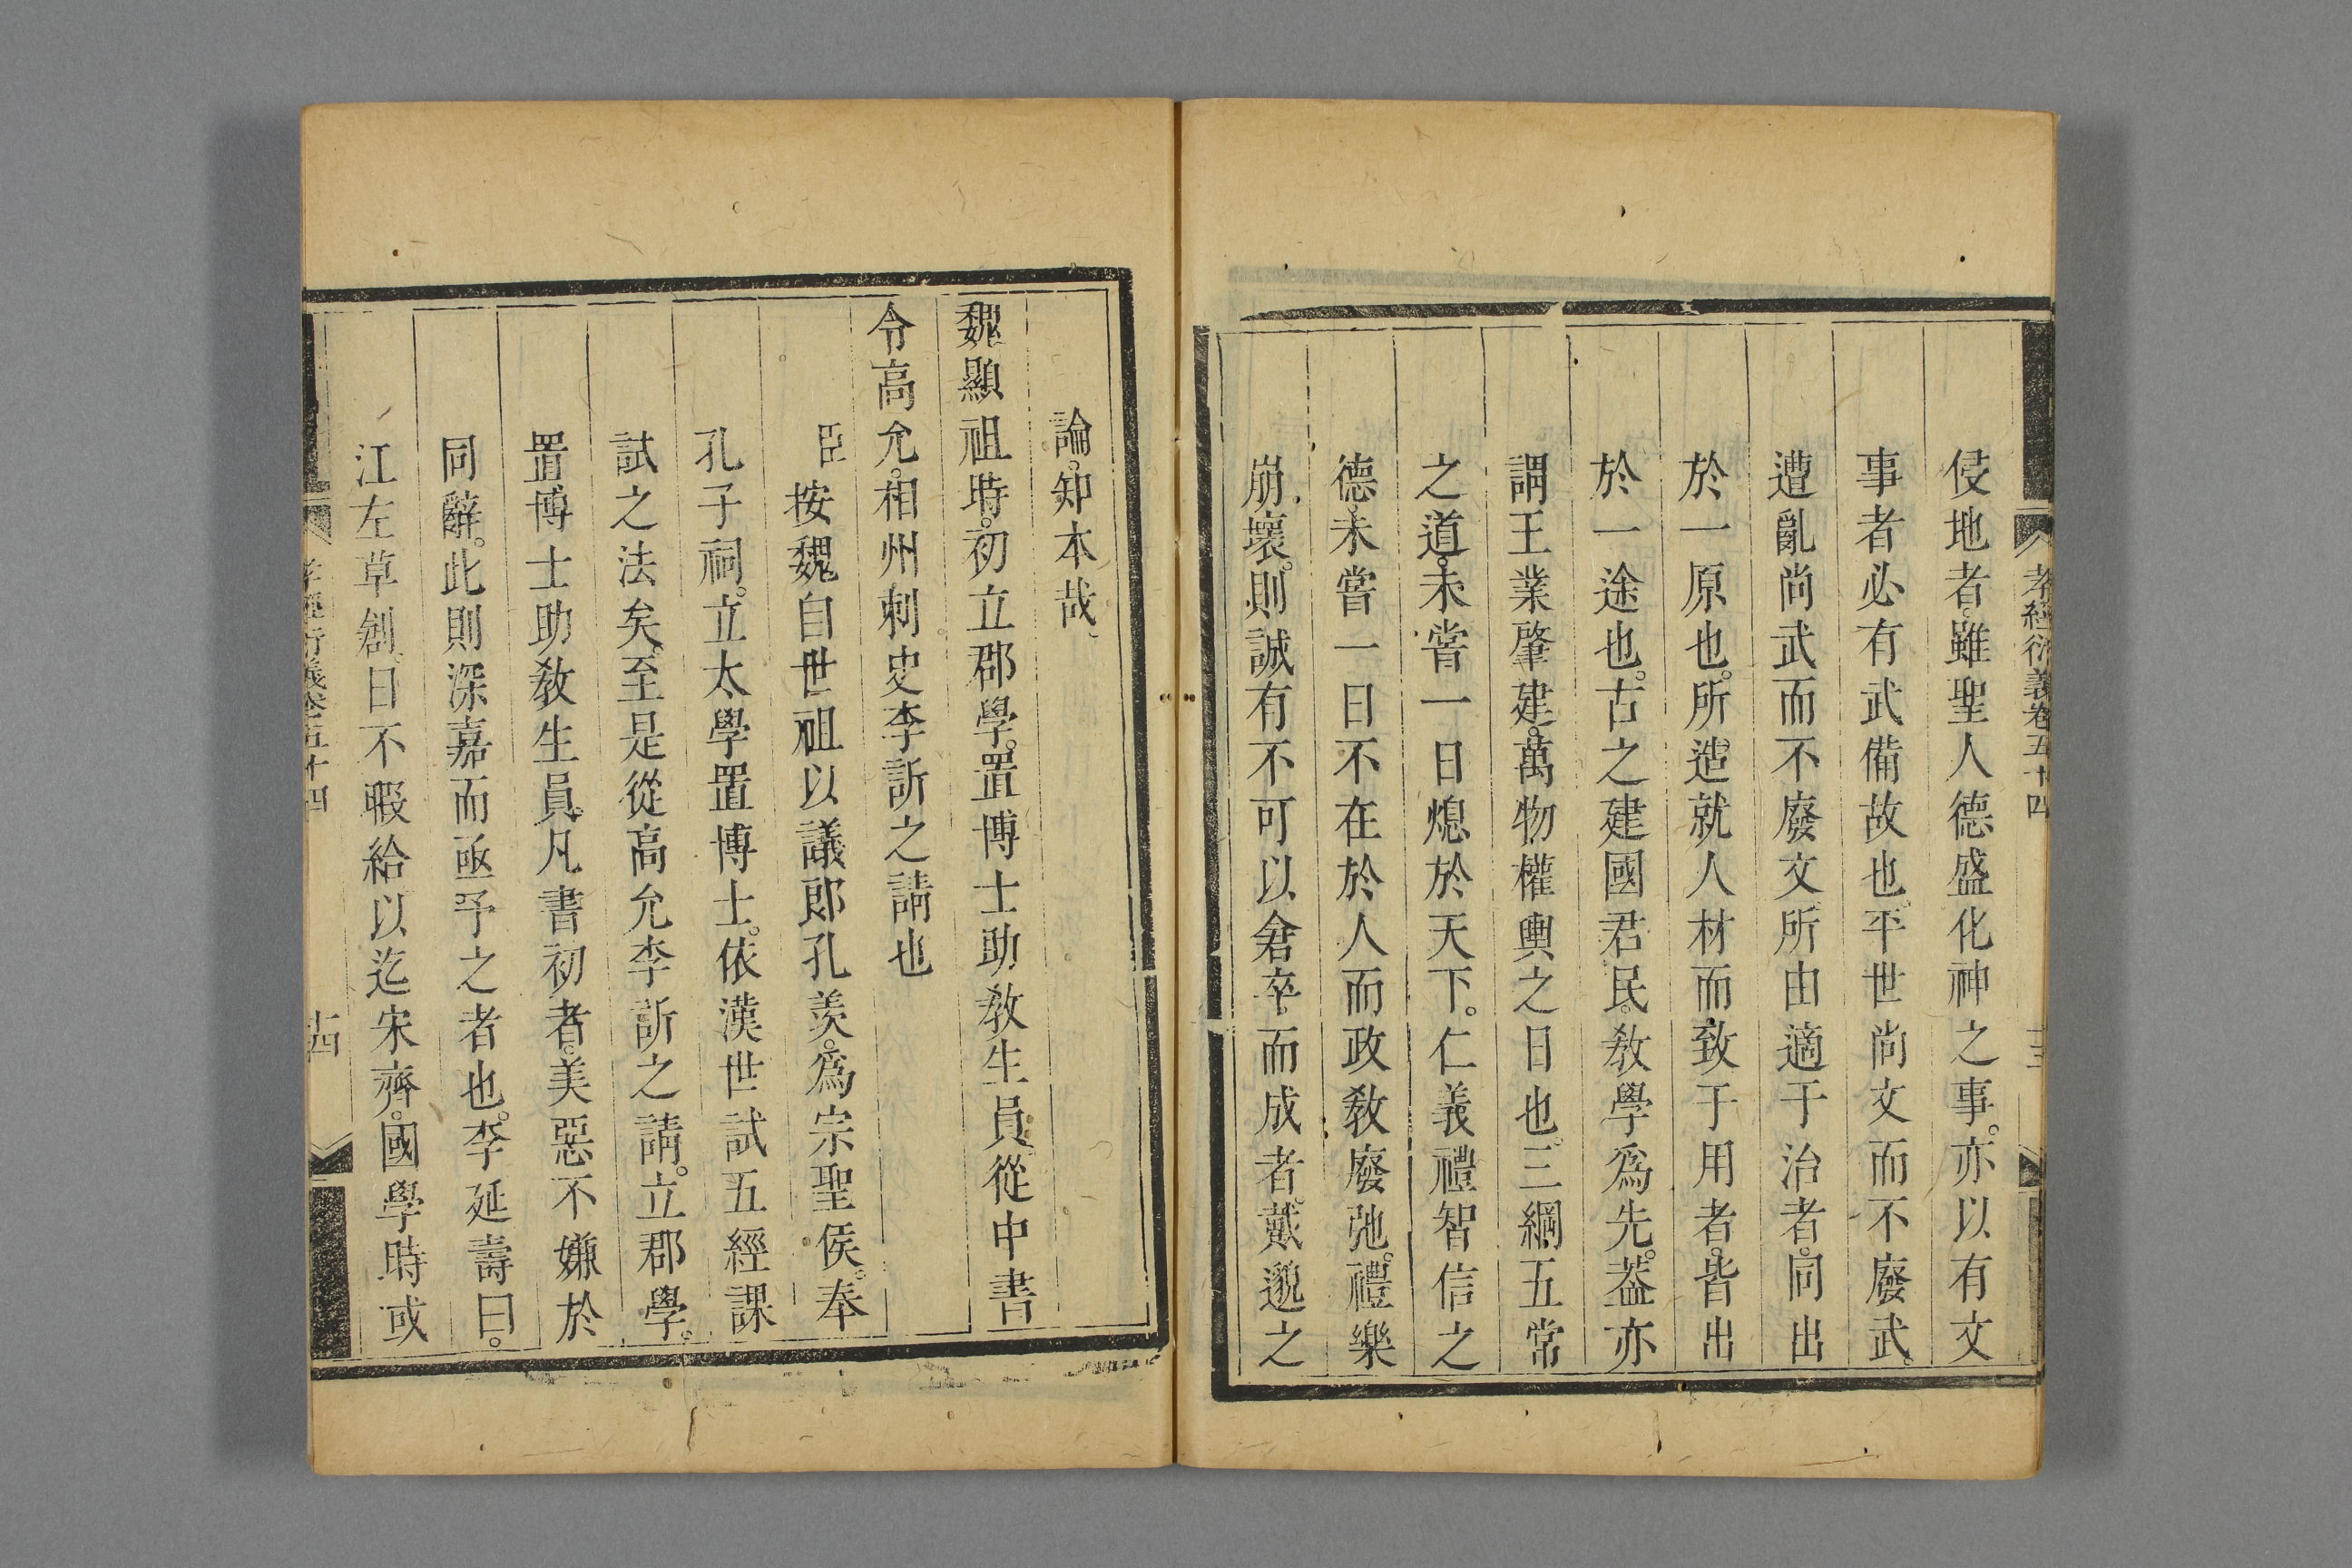 孝經衍義卷五十四
十三
侵地者。雖聖人德盛化神之事。亦以有文
事者必有武備故也。平世尚文而不廢武。
遭亂尚武而不廢文。所由適于治者。同出
於一原也。所造就人材而致于用者。皆出
於一途也。古之建國君民。教學爲先。蓋亦
謂王業肇建。萬物權輿之日也。三綱五常
之道。未嘗一日熄於天下。仁義禮智信之
德。未嘗一日不在於人。而政教廢弛。禮樂
崩壞。則誠有不可以倉卒而成者。戴邈之
論。知本哉。
魏顯祖時。初立郡學。置博士助教生員。從中書
令高允。相州刺史李訢之請也
臣按魏自世祖以議郎孔羨。爲宗聖侯。奉
孔子祠。立太學置博士。依漢世試五經課
試之法矣。至是從高允李訢之請。立郡學。
置博士助教生員。凡書初者。美惡不嫌於
同辭。此則深嘉而亟予之者也。李延壽曰。
江左草創。日不暇給以迄宋齊。國學時或
孝經衍義卷五十四
十四